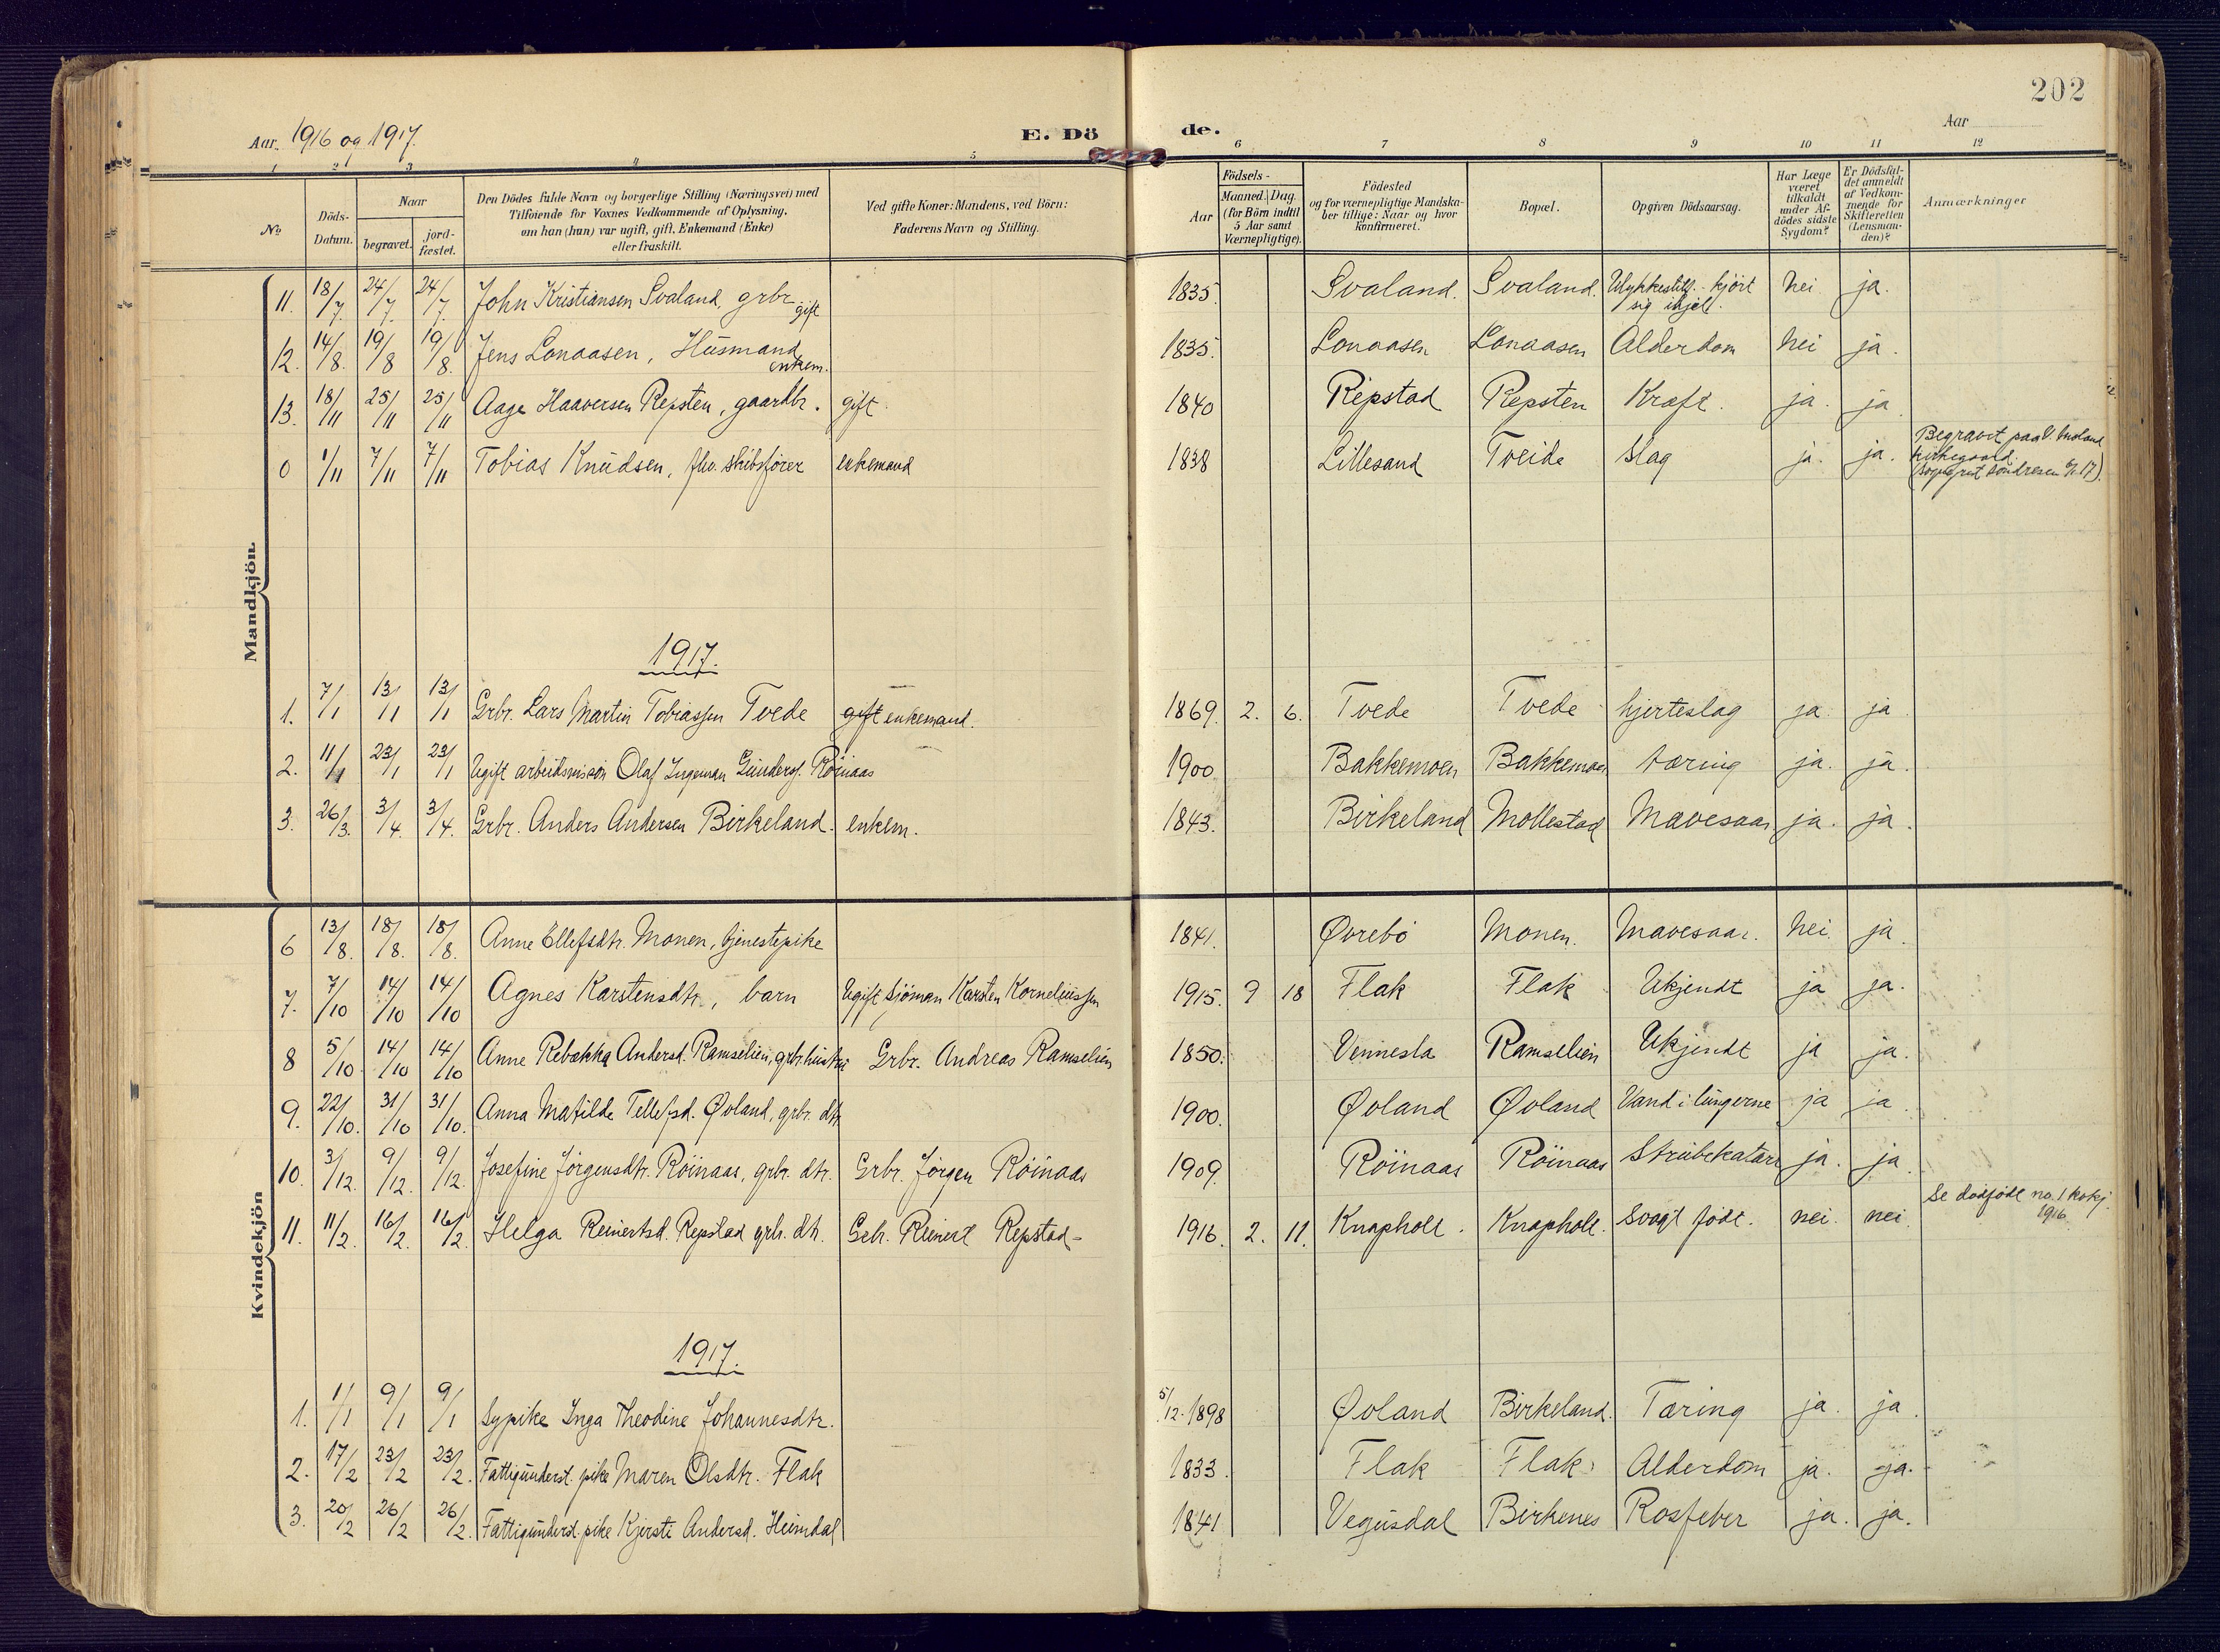 202
Aar. 1916 og 1917.
E. Dö
de.
Aar
1 2 3 4 5
6 7 8 9 10 11 12
No
Döds-Datum.
Naar
begravet.
jord-fæstet.
Den Dödes fulde Navn og borgerlige Stilling (Næringsvei) med
Tilföiende for Voxnes Vedkommende af Oplysning,
om han (hun) var ugift, gift, Enkemand (Enke)
eller fraskilt.
Ved gifte Koner: Mandens, ved Börn:
Faderens Navn og Stilling.
Födsels-
Aar
Maaned. Dag.
(for Börn indtil
5 Aar samt
Værnepligtige).
Födested
og for værnepligtige Mandska-
ber tillige: Naar og hvor
konfirmeret.
Bopæl.
Opgiven Dödsaarsag.
Har Læge
været
tilkaldt
under Af-
dödes sidste
Sygdom?
Er Dödsfal-
det anmeldt
af Vedkom-
mende for
Skifteretten
(Lensman-
den)?
Anmærkninger
Mandkjön.
11. 18/7. 24/7. 24/7. John Kristiansen Svaland, grbr. gift 1835. Svaland. Svaland. Ulykkestilf. - kjört sig ihjel. nei ja.
12. 14/8. 19/8 19/8. Jens Lonaasen, Husmand enkem. 1835. Lonaasen Lonaasen Alderdom nei ja.
13. 18/11 25/11 25/11 Aage Haaversen Repsten, gaardbr. gift 1840 Repstad Repsten Kræft. ja. ja.
0 1/11 7/11 7/11 Tobias Knudsen, fhv. skibsfører enkemand 1838 Lillesand Tveide slag ja. ja. Begravet paa V. Moland
kirkegaard.
1917.
1. 7/1 13/1 13/1 Grbr. Lars Martin Tobiassen Tvede gift enkemand. 1869. 2. 6. Tvede Tvede hjerteslag ja. ja
2. 11/1 23/1 23/1 Ugift Olaf Ingeman Gunders. Röinaas 1900. Bakkemoen Bakkemoen tæring ja. ja.
3. 26/3. 3/4. 3/4. Grbr. Anders Andersen Birkeland. enkem. 1843. Birkeland Mollestad Mavesaar ja. ja.
Kvindekjön
6 13/8. 18/8. 18/8. Anne Ellefsdtr. Monen, tjenestepike 1841. Øvrebö Monen. Mavesaar. nei. ja.
7. 7/10 14/10 14/10 Agnes Karstensdtr., barn Ugift sjöman Karsten Korneliussen 1915. 9 18 Flak Flak Ukjendt ja ja.
8 5/10. 14/10 14/10 Anne Rebækka Andersd. Ramselien, grbr. hustru Grbr. Andreas Ramselien 1850. Vennesla Ramselien Ukjendt ja ja.
9. 22/10. 31/10 31/10. Anna Matilde Tellefsd. Øvland, grbr. dtr. 1900. Øvland Øvland Vand i lungerne ja ja.
10. 3/12. 9/12. 9/12. Josefine Jörgensdtr. Röinaas, grbr. dtr. Grbr. Jörgen Röinaas 1909. Röinaas Röinaas Strubekatarr ja. ja.
11. 11/2. 16/2. 16/2. Helga Reinertsd. Repstad grbr. dtr. Gbr. Reinert Repstad - 1916. 2. 11. Knapholt. Knapholt. Svagt födt. nei. nei. Se dödfödte no. 1 kvkj. 1916.
1917.
1. 1/1 9/1 9/1 Sypike Inga Theodine Johannesdtr. 5/12. 1898 Øvland Birkeland. Tæring ja. ja.
2. 17/2 23/2 23/2. Fattigunderst. pike Maren Olsdtr. Flak 1833. Flak Flak Alderdom ja. ja.
3. 20/2 26/2 26/2. Fattigunderst. pike Kjersti Andersd. Heimdal 1841 Vegusdal Birkenes Rosfeber ja. ja.